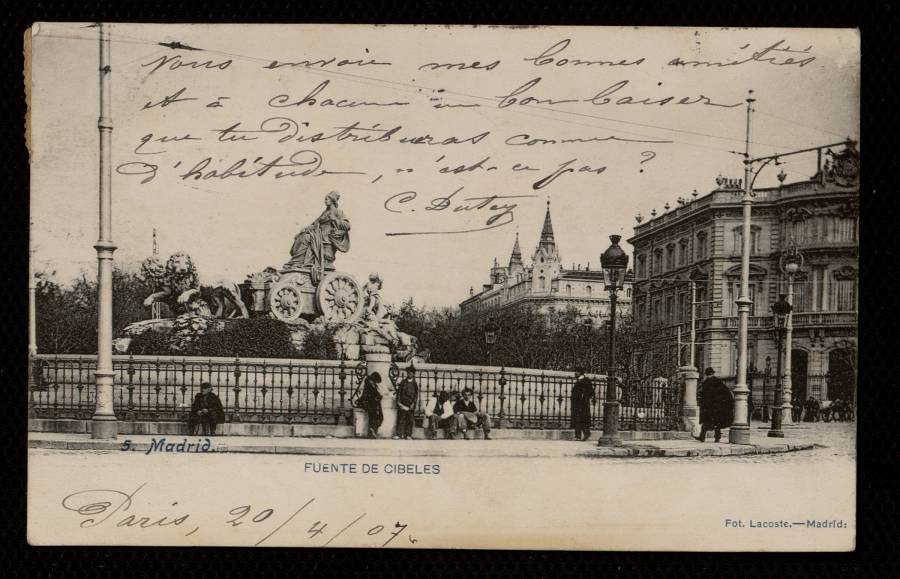 Vous envoie mes bonnes amitiés
et à chacun un bon baiser
que tu distribueras comme
d'habitude, n'est-ce pas ?
5. Madrid.
FUENTE DE CIBELES
Paris, 20/4/07
Fot. Lacoste.—Madrid.